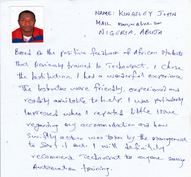 NAME: KINGSLEY JOHN
MAIL:
NIGERIA, ABUJA
Based on the positive feedback of African students
that previously trained in Technocrat, I chose
the Institution. I had a wonderful experience.
The instructors were friendly, experienced and
readily available to assist. I was particularly
impressed when I reported little issue
regarding my accommodation and how
swiftly action was taken by the management
to sort it out. I will definitely
recommend Technocrat to anyone
Automation training.